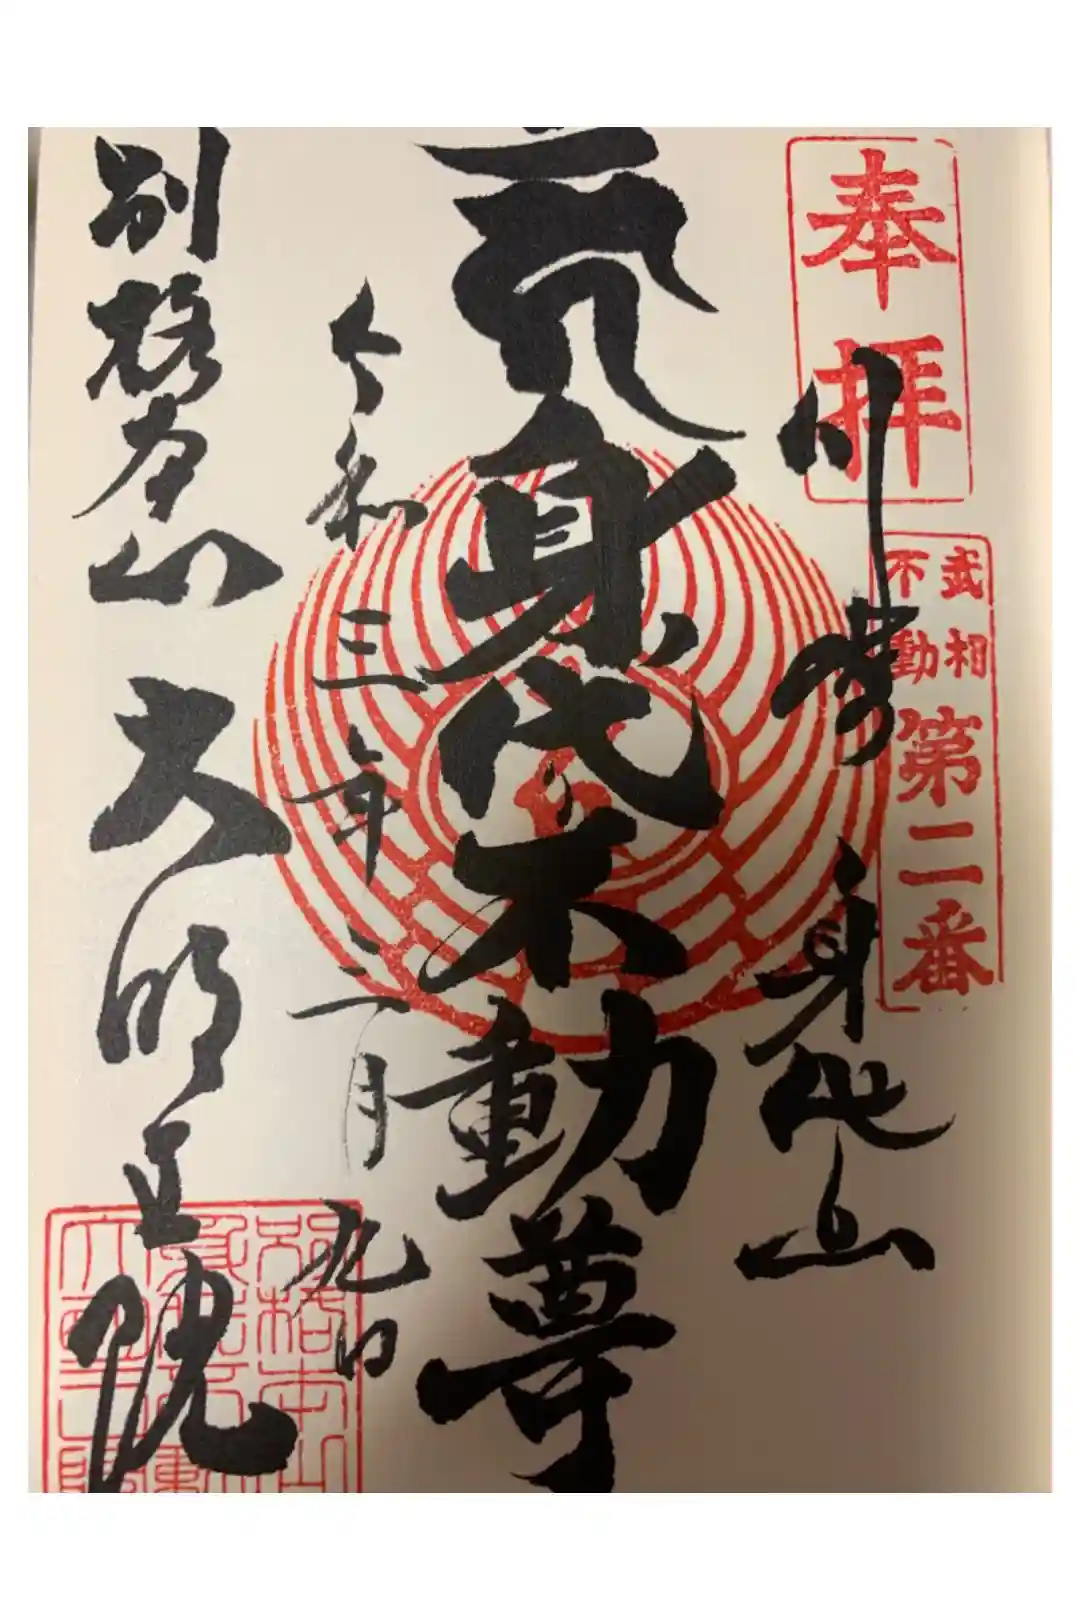 奉拝
川崎 身代山
武相
不動
第二番
身代り不動尊
令和三年二月九日
別格本山 大明王院